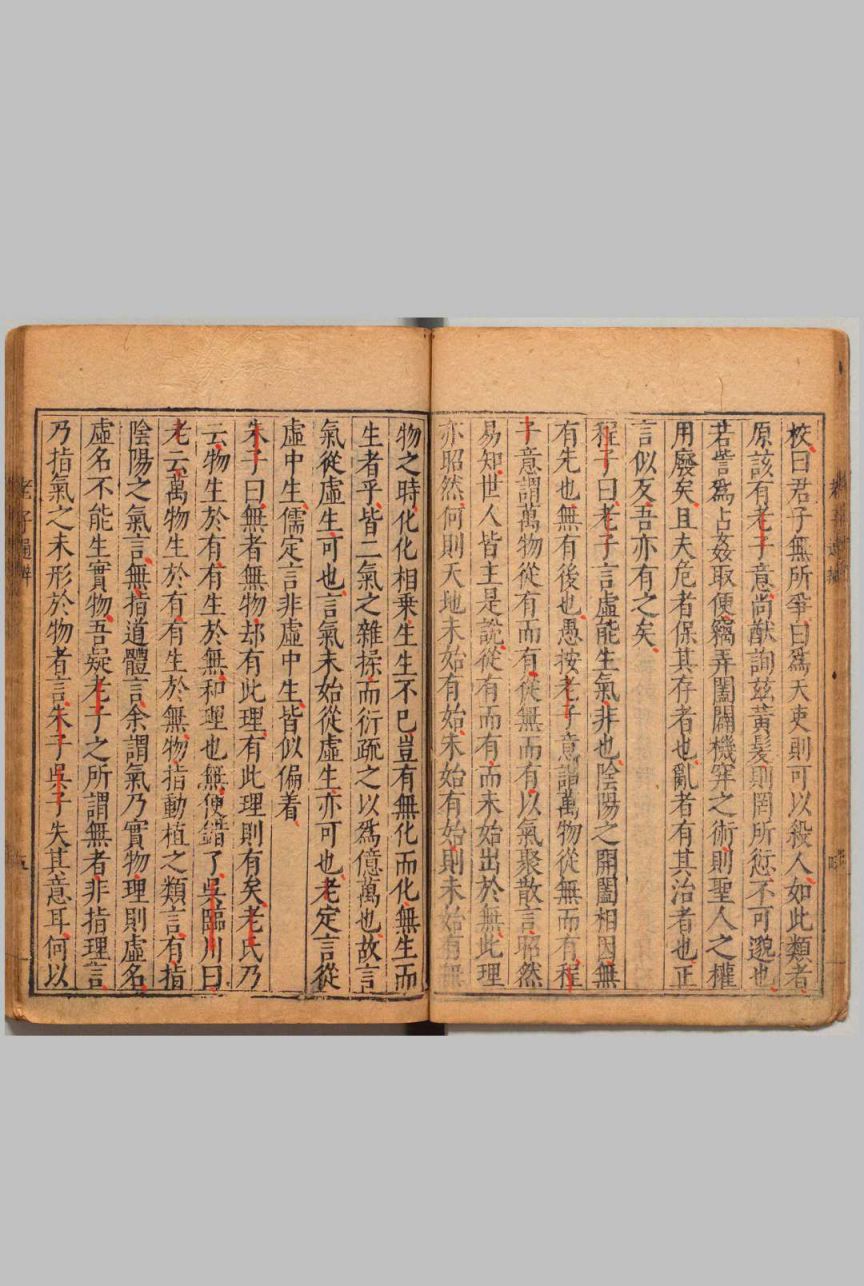 校曰君子無所爭曰爲天吏則可以殺人如此類者
原該有老子意尚猷詢兹黃髮則罔所愆不可邈也
若訾爲占姦取便竊弄闔闢機穽之術則聖人之權
用廢矣且夫危者保其存者也亂者有其治者也正
言似反吾亦有之矣
程子曰老子言虛能生氣非也陰陽之開闔相因無
有先也無有後也愚按老子意謂萬物從無而有程
子意謂萬物從有而有從無而有以氣聚散言昭然
易知世人皆主是說從有而有而未始出於無此理
亦昭然何則天地未始有始未始有始則未始有無
物之時化化相乘生生不已豈有無化而化無生而
生者乎皆二氣之雜揉而衍疏之以爲億萬也故言
氣從虛生可也言氣未始從虛生亦可也老定言從
虛中生儒定言非虛中生皆似偏着
朱子曰無者無物却有此理有此理則有矣老氏乃
云物生於有有生於無和理也無便錯了吳臨川曰
老云萬物生於有有生於無物指動植之類言有指
陰陽之氣言無指道體言余謂氣乃實物理則虛名
虛名不能生實物吾疑老子之所謂無者非指理言
乃指氣之未形於物者言朱子吳子失其意耳何以
老子通辨
五